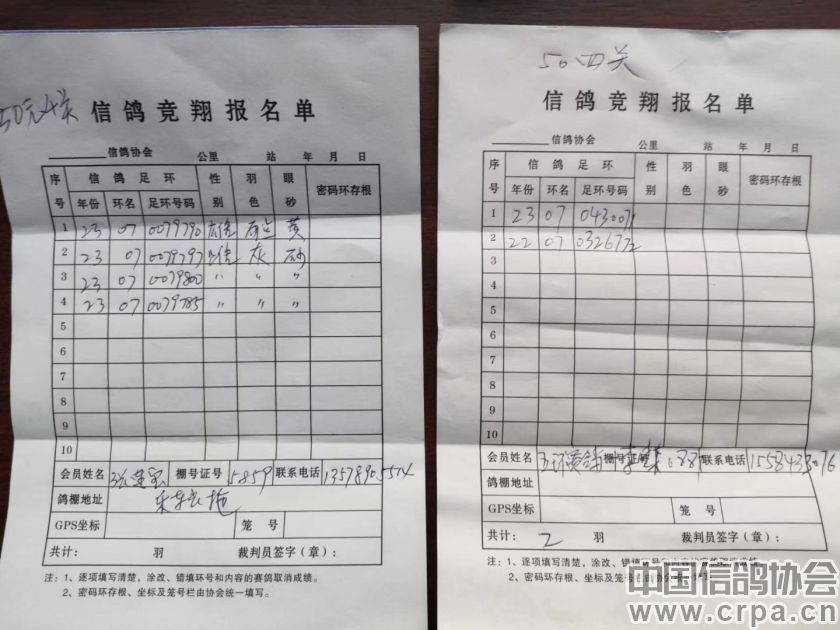 50元4关
信鸽竞翔报名单
信鸽协会 公里 站 年 月 日
序号 信鸽足环 性别 羽色 眼砂 密码环存根
年份 环名 足环号码
1 23 07 0079790 雄 雨点 黄
2 23 07 0079797 雄 灰 砂
3 23 07 0079800 〃 〃 〃
4 23 07 0079785 〃 〃 〃
5
6
7
8
9
10
会员姓名 棚号证号 5859 联系电话 13578905514
鸽棚地址
GPS坐标 笼号
共计: 羽 裁判员签字(章):
注:1、逐项填写清楚,涂改、错填环号和内容的赛鸽取消成绩。
2、密码环存根、坐标及笼号栏由协会统一填写。
50 四关
信鸽竞翔报名单
信鸽协会 公里 站 年 月 日
序号 信鸽足环 性别 羽色 眼砂 密码环存根
年份 环名 足环号码
1 23 07 0430071
2 22 07 0326772
3
4
5
6
7
8
9
10
会员姓名 棚号证号 联系电话
鸽棚地址
GPS坐标 笼号
共计: 2 羽 裁判员签字(章):
注:1、逐项填写清楚,涂改、错填环号和内容的赛鸽取消成绩。
2、密码环存根、坐标及笼号栏由协会统一填写。
中国信鸽协会
www.crpa.cn